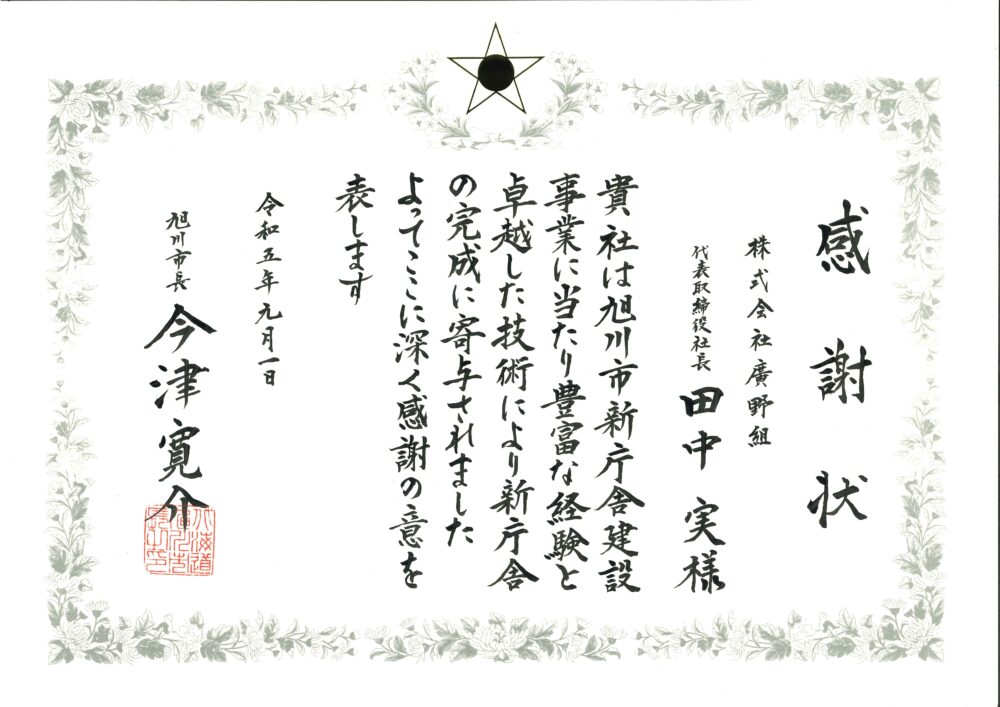 感謝状
株式会社廣野組
代表取締役社長 田中 実様
貴社は旭川市新庁舎建設
事業に当たり豊富な経験と
卓越した技術により新庁舎
の完成に寄与されました
よってここに深く感謝の意を
表します
令和五年元月一日
旭川市長 今津寛介
北海道
旭川市
長之印